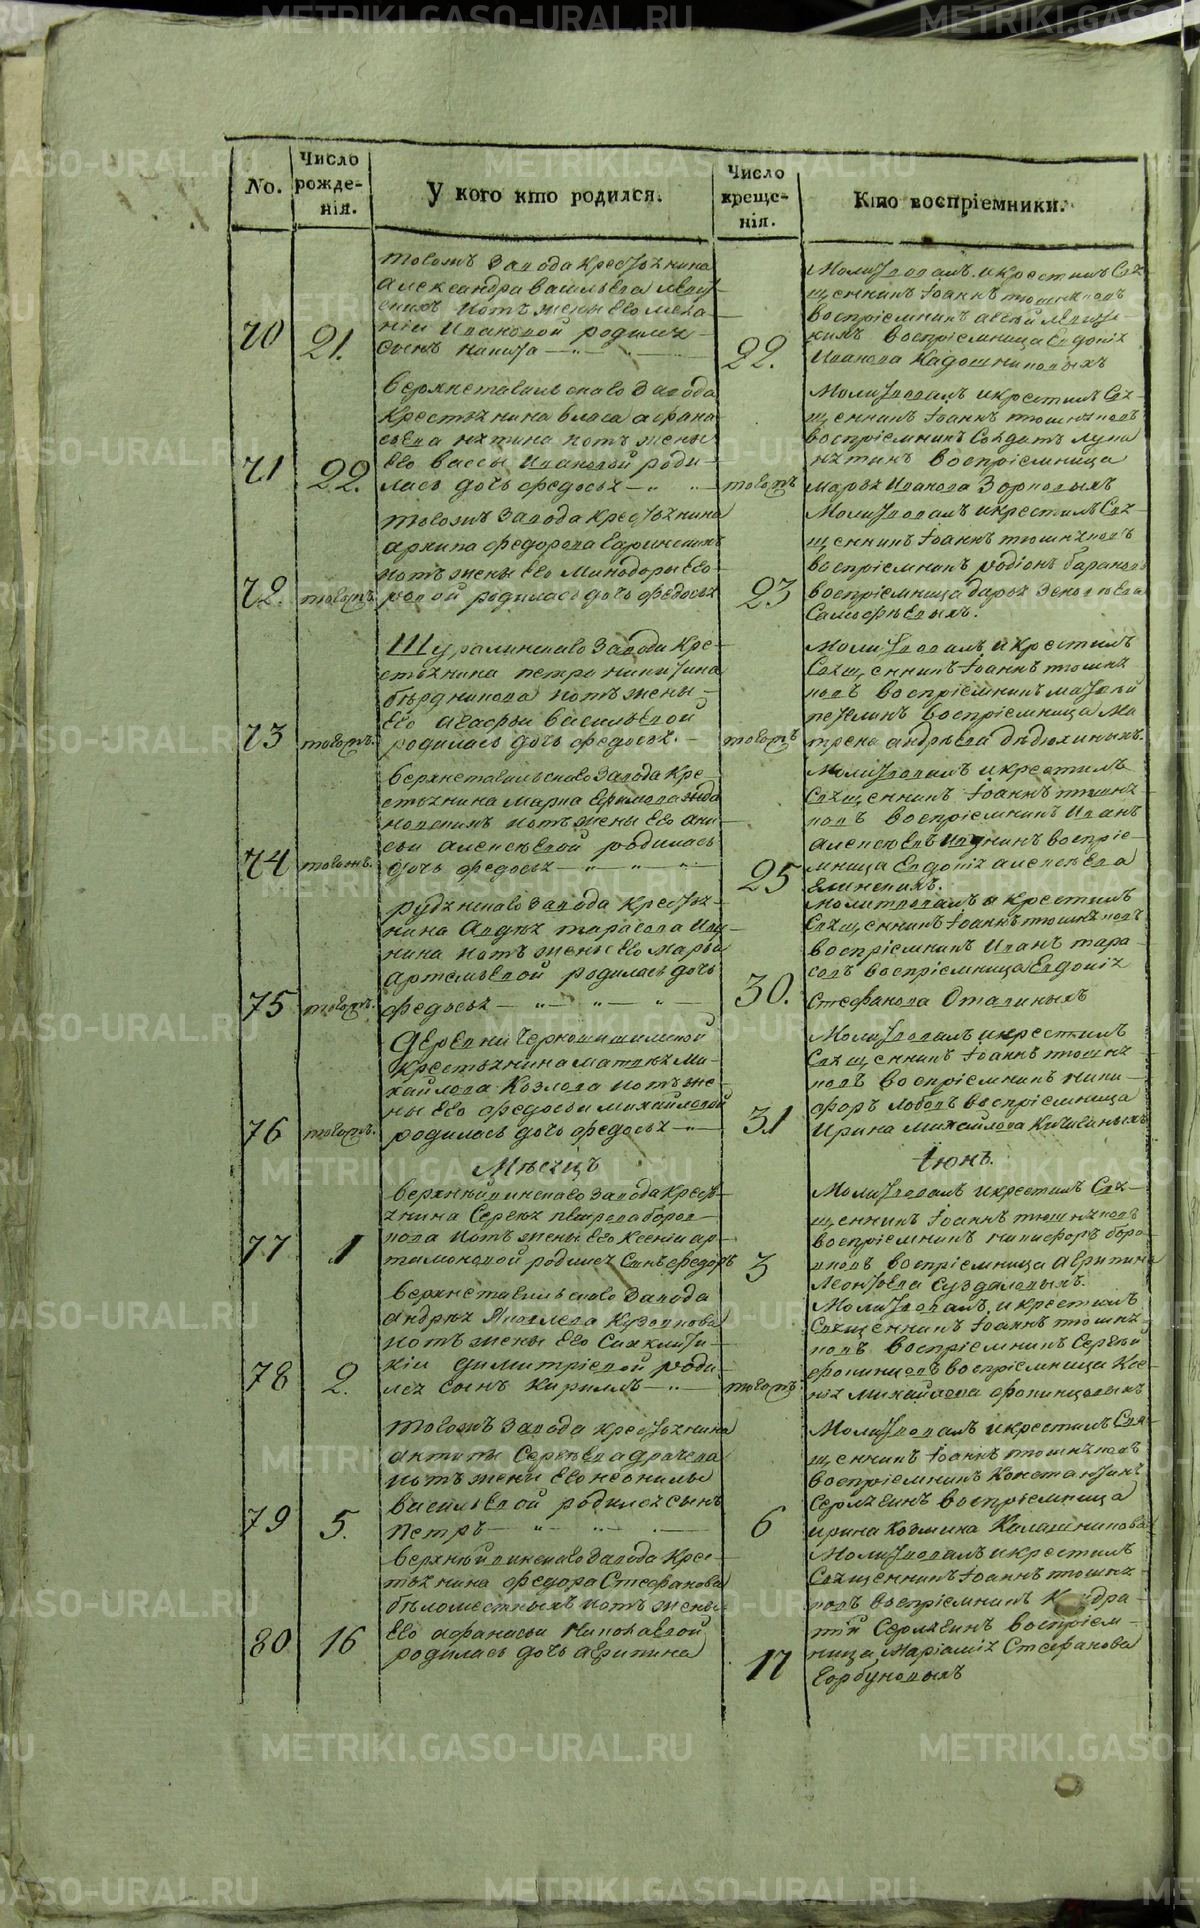 METRIKI.GASO-URAL.RU
No.
Число рожде-
нія.
У кого кто родился.
Число
креще-
нія.
Кто воспріемники.
тогожъ завода крестьянина
александра васильева
ихъ иотъ жены его мела-
ніи ивановой родился
сынъ никита
70
21.
22.
Молитвовалъ и крестилъ Свя-
щенникъ Іоаннъ тошняковъ
воспріемникъ
воспріемница Евдокія
Иванова Кадошниковыхъ
верхнетагильскаго завода
крестьянина власа афана-
сьева нятина иотъ жены
его вассы ивановой роди-
лась дочь федосья
71
22.
тогожъ
Молитвовалъ и крестилъ Свя-
щенникъ Іоаннъ тошняковъ
воспріемникъ Солдатъ лука
нятинъ воспріемница
марья иванова Зорновыхъ
тогожъ завода крестьянина
архипа федорова
иотъ жены его Минодоры его-
ровой родилась дочь федосья
72.
тогожъ
23
Молитвовалъ и крестилъ Свя-
щенникъ Іоаннъ тошняковъ
воспріемникъ родіонъ барановъ
воспріемница дарья
Самофеевыхъ.
Шуралинскаго завода кре-
стьянина петра никитина
бердникова иотъ жены
его агафьи васильевой
родилась дочь федосья.
73
тогожъ.
тогожъ
молитвовалъ и крестилъ
Священникъ Іоаннъ тошня-
ковъ воспріемникъ матвей
петелинъ воспріемница Ма-
трена андреева дедюхиныхъ.
верхнетагильскаго завода кре-
стьянина марка Ефимова
иотъ жены его ани-
сьи алексеевой родилась
дочь федосья
74
тогожъ.
25
Молитвовалъ и крестилъ
Священникъ Іоаннъ тошня-
ковъ воспріемникъ иванъ
алексеевъ воспріе-
мница Евдокія алексеева
рудянскаго завода кресть-
нина Авдея тарасова
нина иотъ жены его марьи
артемьевой родилась дочь
федосья
75
тогожъ.
30.
молитвовалъ и крестилъ
Священникъ Іоаннъ тошняковъ
воспріемникъ иванъ тара-
совъ воспріемница Евдокія
Стефанова
деревни
крестьянина матвея Ми-
хайлова Козлова иотъ же-
ны его федосьи михайловой
родилась дочь федосья
76
тогожъ.
31
Молитвовалъ и крестилъ
Священникъ Іоаннъ тошня-
ковъ воспріемникъ ники-
форъ лобовъ воспріемница
ирина михайлова
Мѣсяцъ
Іюнь.
верхнейвинскаго завода кресть-
янина Сергея петрова боров-
кова иотъ жены его Ксеніи ар-
тамоновой родился Сынъ федоръ
77
1
3
Молитвовалъ и крестилъ Свя-
щенникъ Іоаннъ тошняковъ
воспріемникъ никифоръ боро-
вковъ воспріемница агрипина
леонтьева Суздаловыхъ.
верхнетагильскаго завода
андрея Яковлева
иотъ жены его Синклити-
кіи димитріевой роди-
лся сынъ кириллъ
78
2.
тогожъ
Молитвовалъ и крестилъ
Священникъ Іоаннъ тошня-
ковъ воспріемникъ Сергей
воспріемница Ксе-
нія михайлова
тогожъ завода крестьянина
антипы Сергеева драчева
иотъ жены его неонилы
васильевой родился сынъ
петръ
79
5.
6
Молитвовалъ и крестилъ Свя-
щенникъ Іоаннъ тошняковъ
воспріемникъ Константинъ
воспріемница
ирина козмина Калашникова
верхнейвинскаго завода кре-
стьянина федора Стефанова
бѣломестныхъ иотъ жены
его афанасьи николаевой
родилась дочь агрипина
80
16
17
Молитвовалъ и крестилъ
Священникъ Іоаннъ тошня-
ковъ воспріемникъ
воспріем-
ница Маріамія Стефанова
Горбуновыхъ